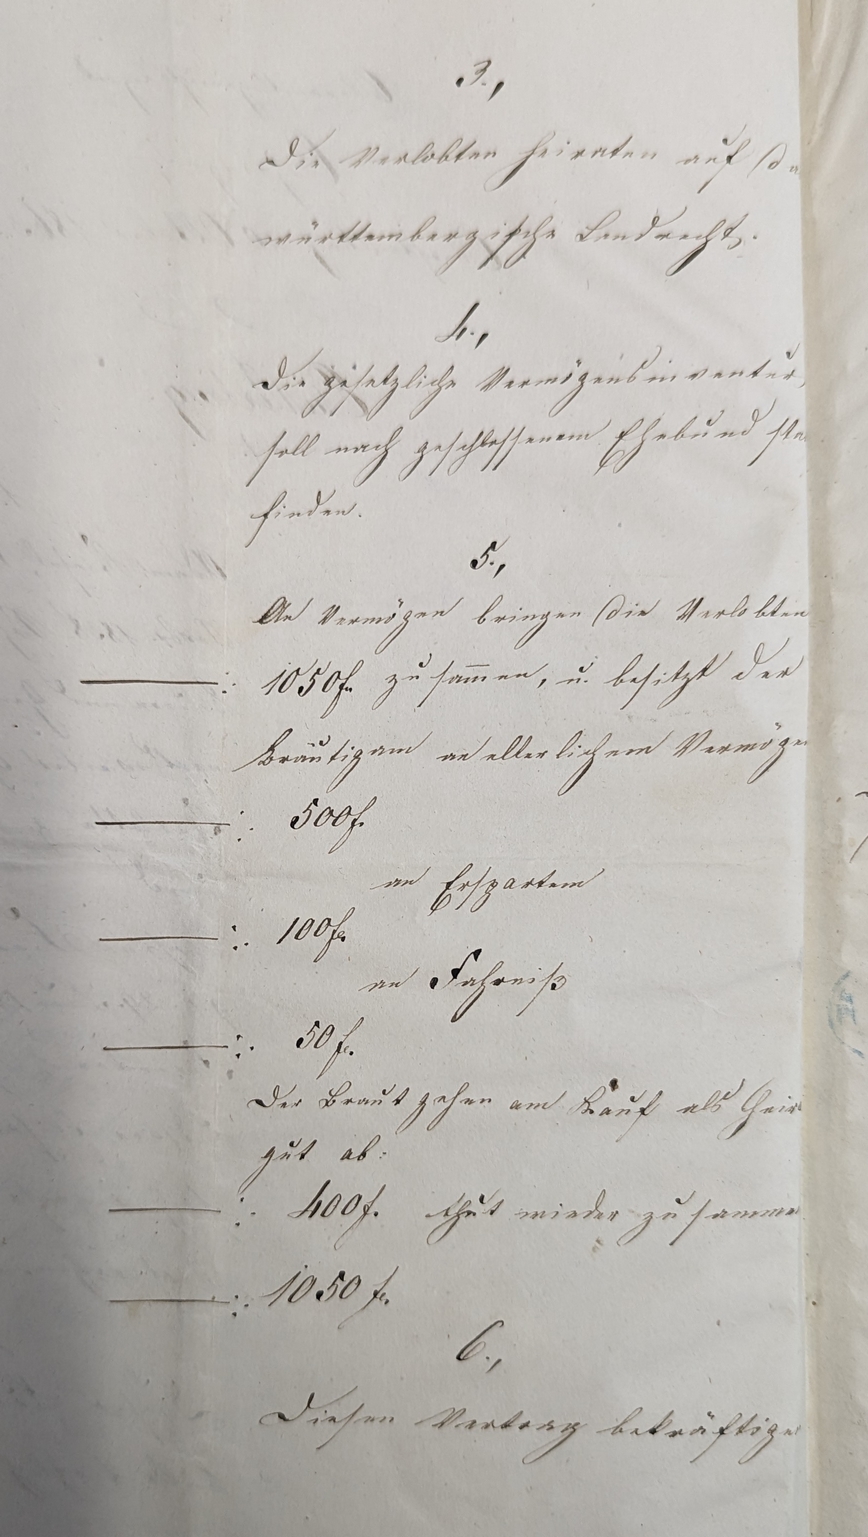 3.,
Die Verlobten heiraten auf da
württembergische Landrecht.
4.,
Die gesetzliche Vermögensinventur,
soll nach geschlossenem Ehebund sta
finden.
5.,
An Vermögen bringen die Verlobten
——— : 1050f. zusam̅en, u. besitzt der
Bräutigam an elterlichem Vermöge
——— : 500f.
an Erspartem
——— : 100f.
an Fahrniß
——— : 50f.
Der Braut gehen am Kauf als Heir
gut ab:
——— : 400f. thut wieder zusamme
——— : 1050 f.
6.,
Diesen Vertrag bekräftige